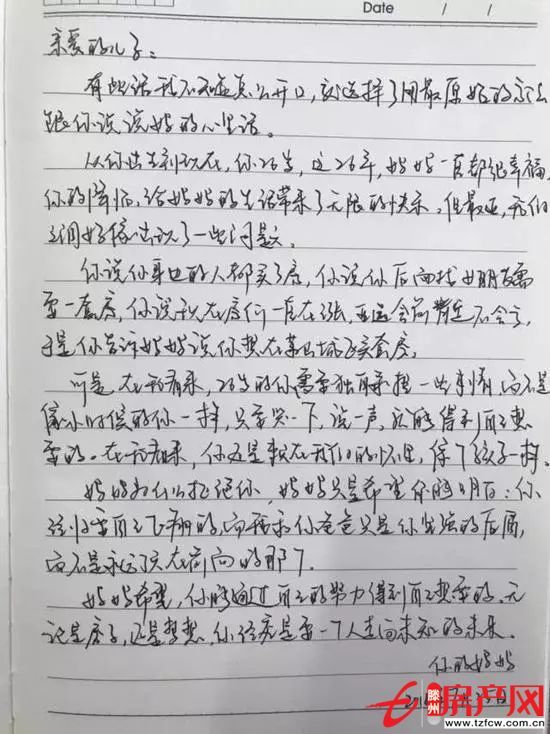 Date / /
亲爱的儿子：
有些话我不知怎么开口，就选择了用最原始的方法
跟你说说妈妈的心里话。
从你出生到现在，你26岁，这26年，妈妈一直都很幸福，
你的降临，给妈妈的生活带来了无限的快乐。但最近，我们
之间好像出现了一些问题。
你说你身边的人都买了房，你说你后面找女朋友需
要一套房，你说现在房价一直在涨，
于是你告诉妈妈说你想在买套房。
可是在我看来，26岁的你需要独自承担一些事情，而不是
像小时候的你一样，只要哭一下，说一声，就能得到自己想
要的。在我看来，你还是躲在我们的怀里，像个孩子一样。
妈妈为什么拒绝你，妈妈只是希望你能明白：你
终归要自己飞翔的，而我和你爸爸只是你坚强的后盾，
而不是永远顶在前面的那个。
妈妈希望，你能通过自己的努力得到自己想要的。无
论是房子，还是梦想，你终究是要一个人走向未知的未来。
你的妈妈
滕州房产网
www.tzfcw.com.cn